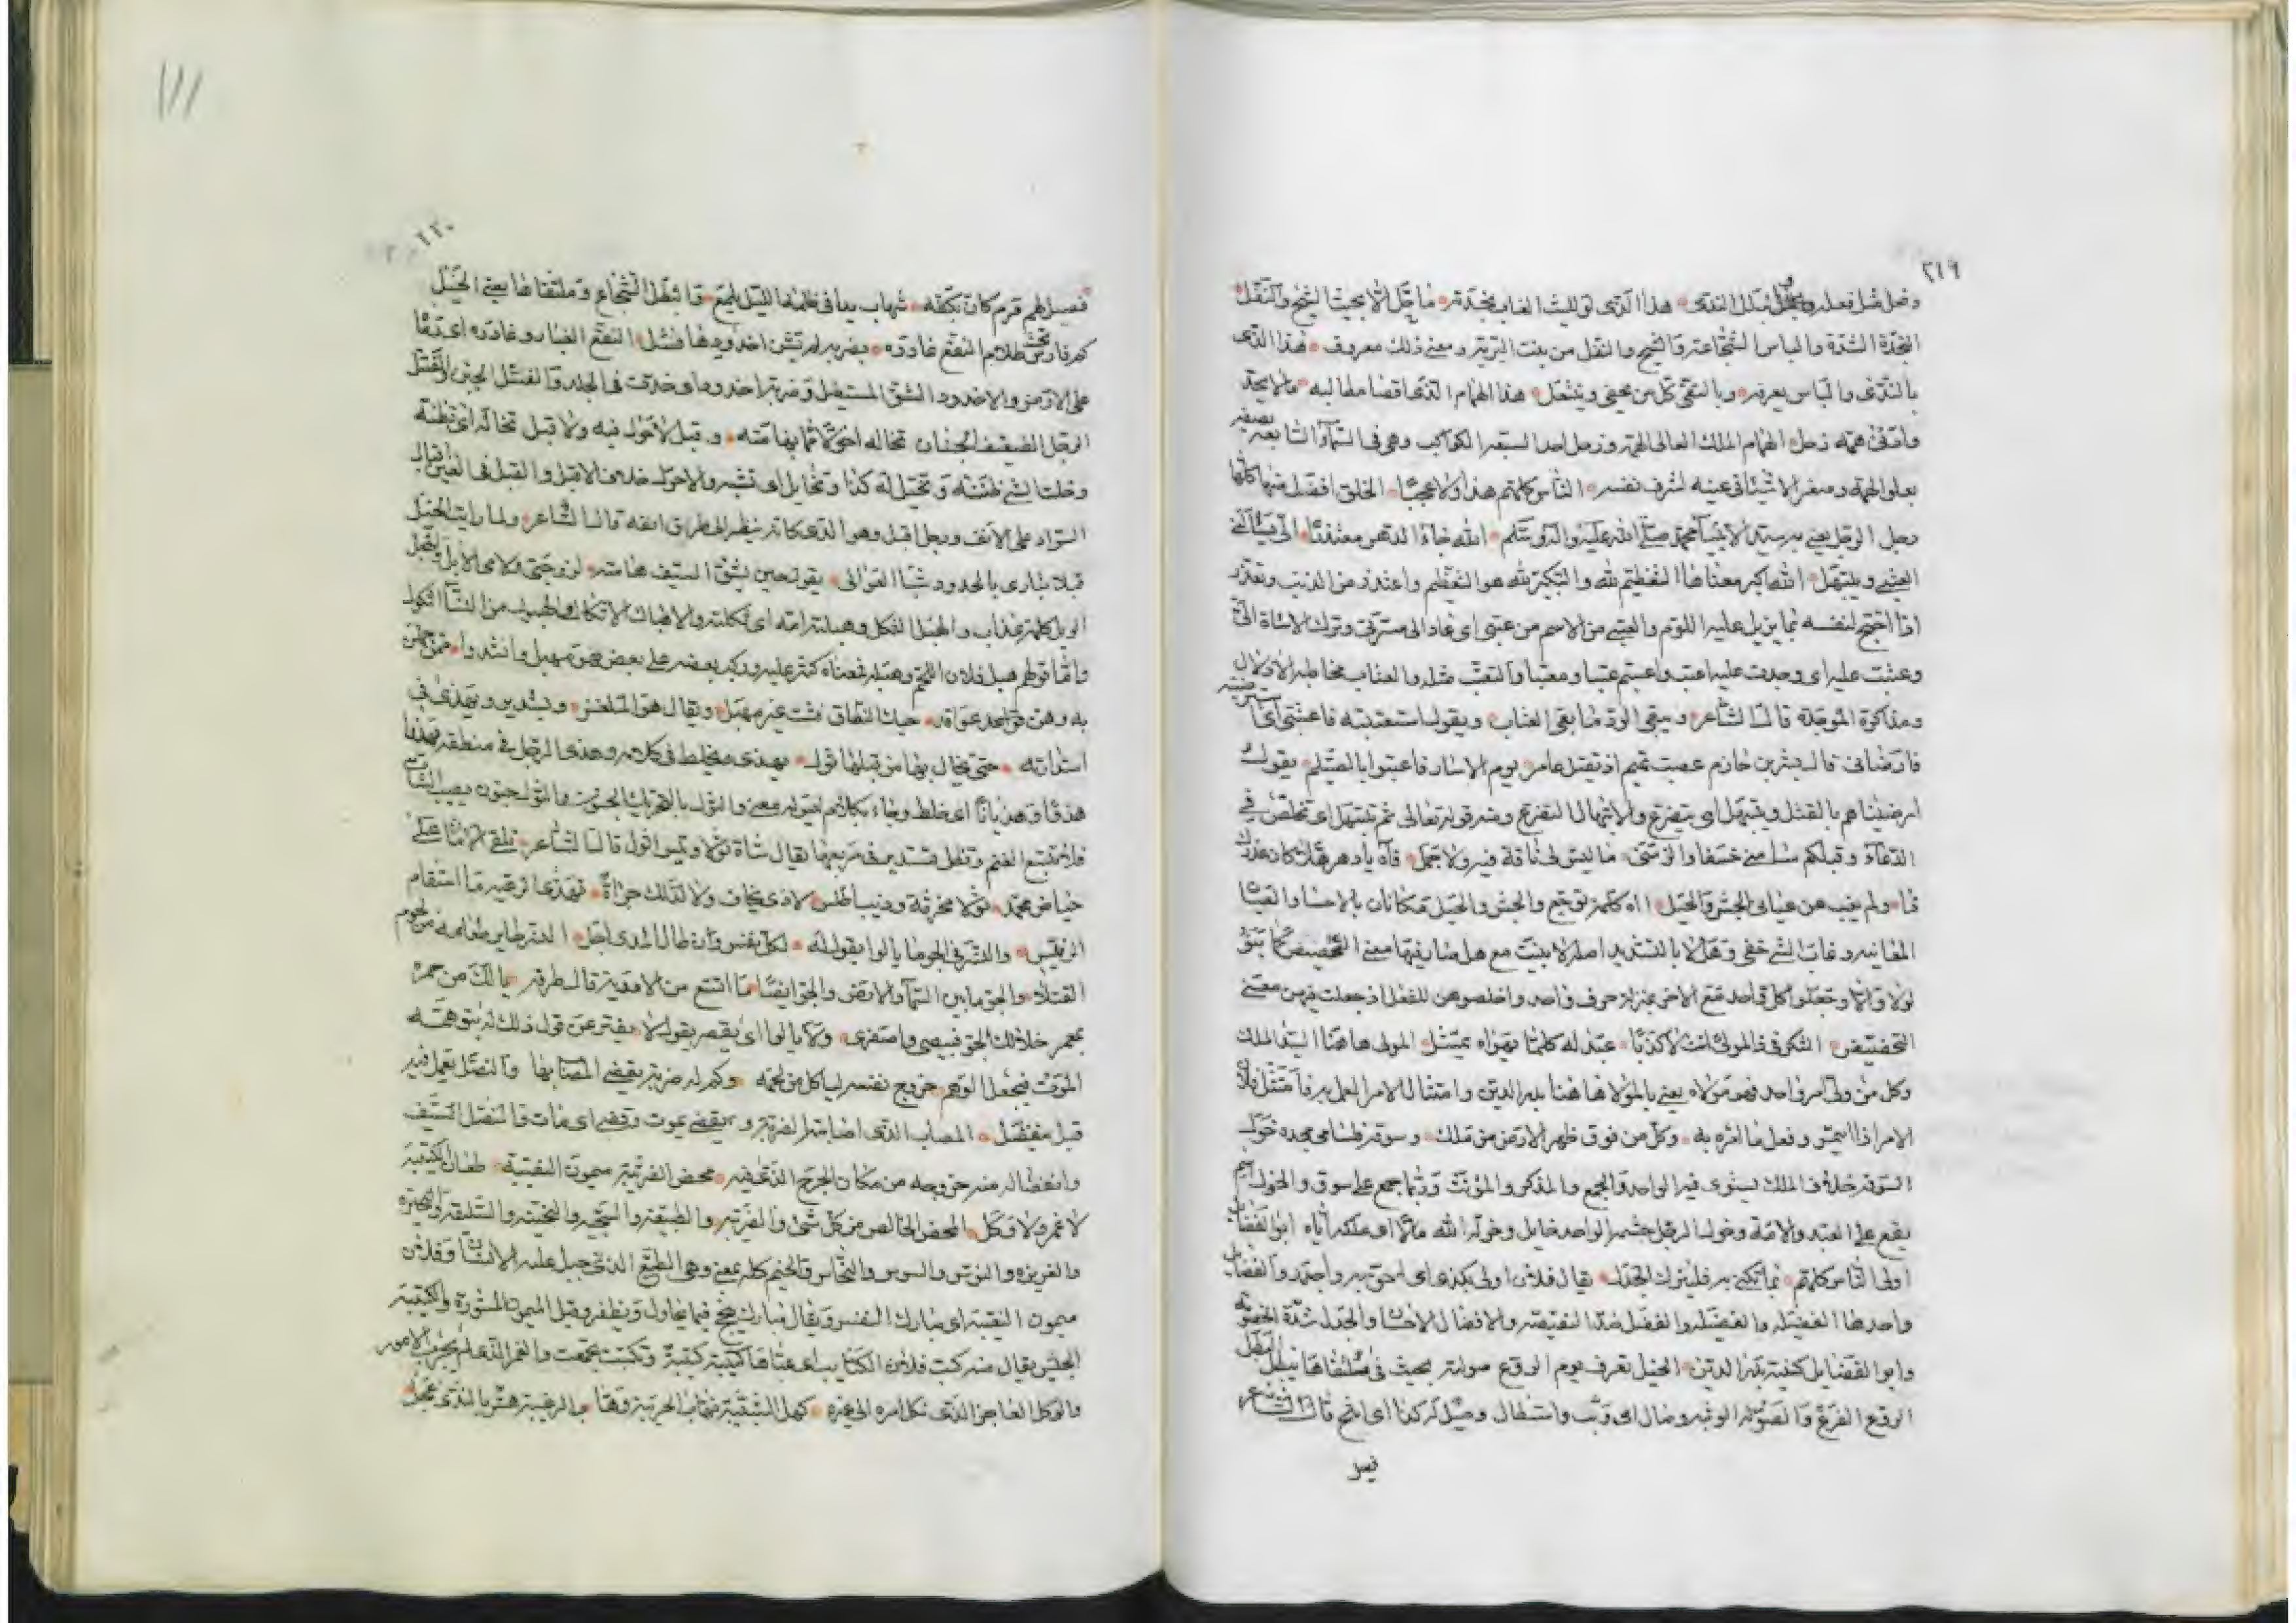 ٢١٩
هذا الذى لليث الغاب نجدته ما خل الا بحيث الشيخ والنفل
النجدة الشدة والباس الشجاعة والشيح والنفل من نبت البرية ومعنى ذلك معروف هذا الذى
بالندى والباس يعرفه وبالتقى كل من يحفى وينتعل هذا الهمام الذى اقضا مطالبه مالا يحد
وادنى همه زحل الهمام الملك العالى الهمة وزحل احد السبعة الكواكب وهى فى السمآء السابعة يصفه
بعلو الهمة وصغر الاشيا فى عينه لشرف نفسه الناس كلهم هذا ولا عجبًا الخلق افضل منها كلها
رجل الرجل يعنى به سيد الانبيآ محمد صلى الله عليه واله وسلم الله جاه الدهر معتذرًا الى
العتبى ويبتهل الله اكبر معناها التعظيم لله والتكبير لله هو التعظيم واعتذر من الذنب وتعذر
اذا احتج لنفسه بما يزيل عليه اللوم والعتبى من الاسم من عتبى اى عاد الى مسرتى وترك الاساة الى
وعتبت عليه اى وجدت عليه اعتب واعتبتم عتبا ومعتبا والتعتب مثله والعتاب مخاطبة الادلال
ومذاكرة الموجدة قال الشاعر ويبقى الود ما بقى العتاب ويقول استعتبته فاعتبنى اى استرضيته
فارضانى قال بشر بن خازم غضبت تميم ان تقتل عامر يوم النسار فاعتبوا بالصيلم يقول
ارضيناهم بالقتل ويبتهل اى يتضرع والابتهال التضرع ومنه قوله تعالى ثم نبتهل اى نخلص فى
الدعآء وقبلكم ما ليس لى ناقة فيه ولا جمل فآه يا دهر هلا كان
ولم يغيب عن عيانى الجش والخيل اه كلمة توجع والجش والخيل مكانان بالاحسا والعيان
المعاينه وغاب الشى خفى وهلا بالتشديد اصله لا بنيت مع هل فصار فيها معنى التحضيض كما بنو
لولا والا وجعلوا كل واحد مع الاخر بمنزلة حرف واحد واخلصوهن للفعل اذ جعلت فيهن معنى
التحضيض الشكر فى ذا لمولى لا كذبًا عبد له كلما يهواه يمتثل المولى هاهنا السيد الملك
وكل من ولى امر واحد فهو مولاه يعنى بالمولا هاهنا بدر الدين وامتثال الامر العمل به فامتثل فلان
الامر اذا وفعل ما امره به وكل من فوق ظهر الارض من ملك وسوقة لسامى مجده خول
السوقة خلاف الملك يستوى فيه الواحد والجمع والمذكر والمؤنث وربما جمع على سوق والخول اسم
يقع على العبد والامة وخول الرجل حشمه الواحد خايل وخوله الله مالا اى ملكه اياه ابو الفضايل
اولى الناس كلهم بما تكنى به فليترك الجدل يقال فلان اولى بكذا اى احق به واجدر والفضايل
واحدها الفضيلة والفضيلة والفضل ضد النقيصة والافضال الاحسان والجدل شدة الخصومة
وابو الفضايل كنية بدر الدين الخيل تعرف يوم الروع صولته بحيث فى ملتقاها يبطل البطل
الروع الفزع والصولة الوثبة وصال اى وثب واستطال قال الشاعر
فيسر
١١١
٢٢٠
قرم كان بكفه شهاب بدا فى ظلمة الليل يلمع والبطل الشجاع وملتقاها يعنى الخيل
كم فارس تحت ظلام النقع غادره بضربة لم تشن اخدودها فشل النقع الغبار وغادره اى
على الارض والاخدود الشق المستطيل وضربة اخدود اى خدت فى الجلد والفشل الجبن والفشل
الرجل الضعيف الجنان تخاله احولًا مما بهامته وقبل لا حول فيه ولا قبل تخاله اى تظنه
وخلت الشى ظننته وتخيل له كذا وتخايل اى تشبه والاحول خلاف الاقبل والقبل فى العين اقبال
السواد على الانف ورجل اقبل وهو الذى كانه ينظر الى طرف انفه قال الشاعر ولما رايت الخيل
قبلا تبارى بالخدود شبا العوالى يقول حين يشق السيف هامته لزوجتى ولامى الويل والهبل
الويل كلمة عذاب والهبل الثكل وهبلته امه اى ثكلته والاهبال الاثكال والهبول من النسآ الثكول
واما قولهم هبل فلانا اللحم وهبله فمعناه كثر عليه وركب بعضه على بعض فهو مهبل وانشدوا ممن حملن
به وهن عواقد حبك النطاق فشب غير مهبل ويقال هو الملعن ويستدير ويهذى فى
استدارته حتى يخال بها من قبلها ثول يهذى يخلط فى كلامه وهذى الرجل فى منطقه يهذى
هذيا وهذيانًا اى خلط وجاء بكلام ليس له معنى والثول بالتحريك الجنون والثول جنون يصيب الشاة
فلا تتبع الغنم وتظل تستدير فى مرتعها يقال شاة ثولا وتيس اثول قال الشاعر تلقى الامان على
حياض محمد ثولا مخرفة وذيب اطلس لا ذى تخاف ولا لذلك جراة تهدى الرعية ما استقام
الرئيس والنسر فى الجو ما يالوا يقول له لكل نفس وان طال المدى اجل النسر طاير طعامه من لحوم
القتلا والجو ما بين السمآ والارض والجو ايضًا ما اتسع من الاودية قال طرفة يا لك من حمرة
بمعمر خلالك الجو فبيضى واصفرى ولا يالوا اى يقصر يقول لا يفتر عن قول ذلك
الموت فيجعل الوهم خروج نفسه لياكل من لحمه وكم له ضربة يقضى المصاب بها والنصل يعمل فيه
قبل ينفصل المصاب الذى اصابته الضربة ويقضى يموت وقضى اى مات والنصل السيف
وانفصاله منه خروجه من مكان الجرح الذى فيه محض الضريبة ميمون النقيبة طعان الكتيبة
لا غمر ولا وكل المحض الخالص من كل شى والضريبة والطبيعة والسجية والنحيتة والسليقة والنحيزة
والغريزه والتوس والسوس والنحاس والخيم كله بمعنى وهى الطبع الذى جبل عليه الانسان وفلان
ميمون النقيبة اى مبارك النفس ويقال مبارك ينجح فيما يحاول ويظفر وقيل الميمون المشورة والكتيبة
الجيش يقال منه كتب فلان الكتايب اى عباها كتيبة كتيبة وتكتبت تجمعت والغمر الذى لم يجرب الامور
والوكل العاجز الذى تكل امره الى غيره بالندى عجل